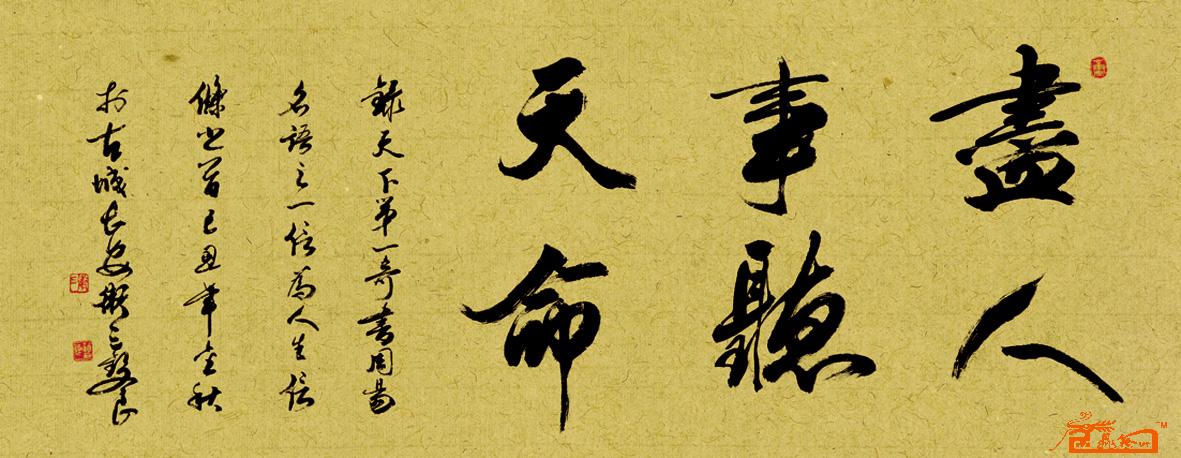 盡人
事聽
天命
錄天下第一奇書周易
名語之一信為人生信
條也 時己丑年金秋
於古城長安